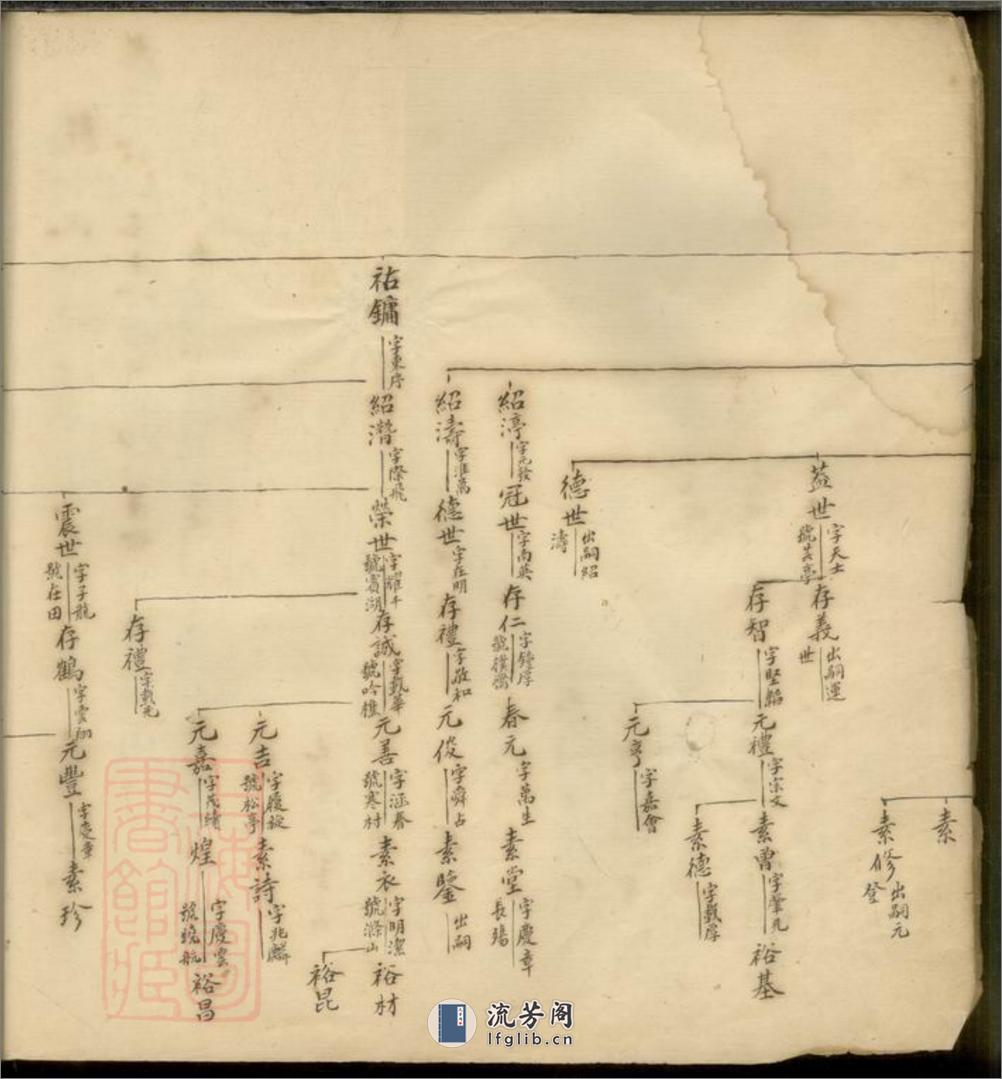 素
素修 出嗣元登
蓋世 字天士
存義 出嗣運世
存智 字堅韜
元禮 字宗文
素曾 字肇凡
裕基
素德 字載厚
元亨 字嘉會
德世 出嗣紹濤
紹渟 字元發
冠世 字南英
存仁 字鍾厚
春元 字萬生
素堂 字慶章 長殤
紹濤 字淮萬
德世 字在明
存禮 字敬和
元俊 字舜占
素鑒 出嗣
祐鏞 字東序
紹潛 字際飛
榮世 字耀千 號賓湖
存誠 字載華 號吟樵
元善 字涵春 號寒村
素衣 字明潔 號滌山
裕材
裕昆
元吉 字履旋 號松亭
素詩 字兆麟
元嘉 字茂緒
煌 字慶雲 號曉航
裕昌
存禮 字載先
震世 字子龍 號在田
存鶴 字雲翔
元豐 字慶章
素珍
上海圖書館藏
流芳阁
lfglib.cn